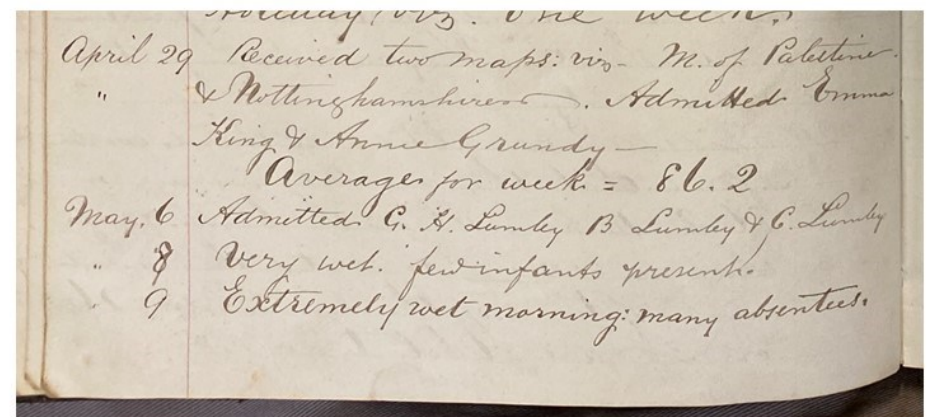 Holiday, viz. One week.
April 29 Received two maps: viz - M. of Palestine
" & Nottinghamshire. Admitted Emma
King & Annie Grundy —
Average for week = 86.2
May. 6 Admitted G. H. Lumley B Lumley & C. Lumley
" 8 Very wet. few infants present.
" 9 Extremely wet morning: many absentees.